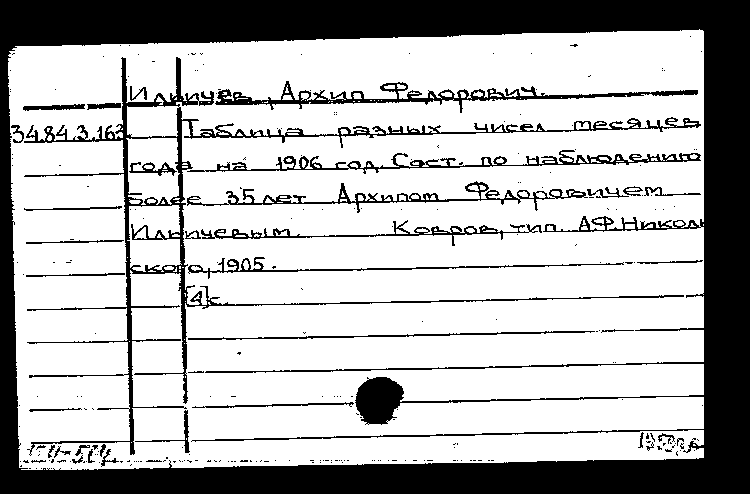 Ильичев, Архип Федорович.
34.84.3.163. Таблица разных чисел месяцев
года на 1906 год. Сост. по наблюдению
более 35 лет Архипом Федоровичем
Ильичевым. Ковров, тип. А.Ф. Николь
ского, 1905.
[4] с.